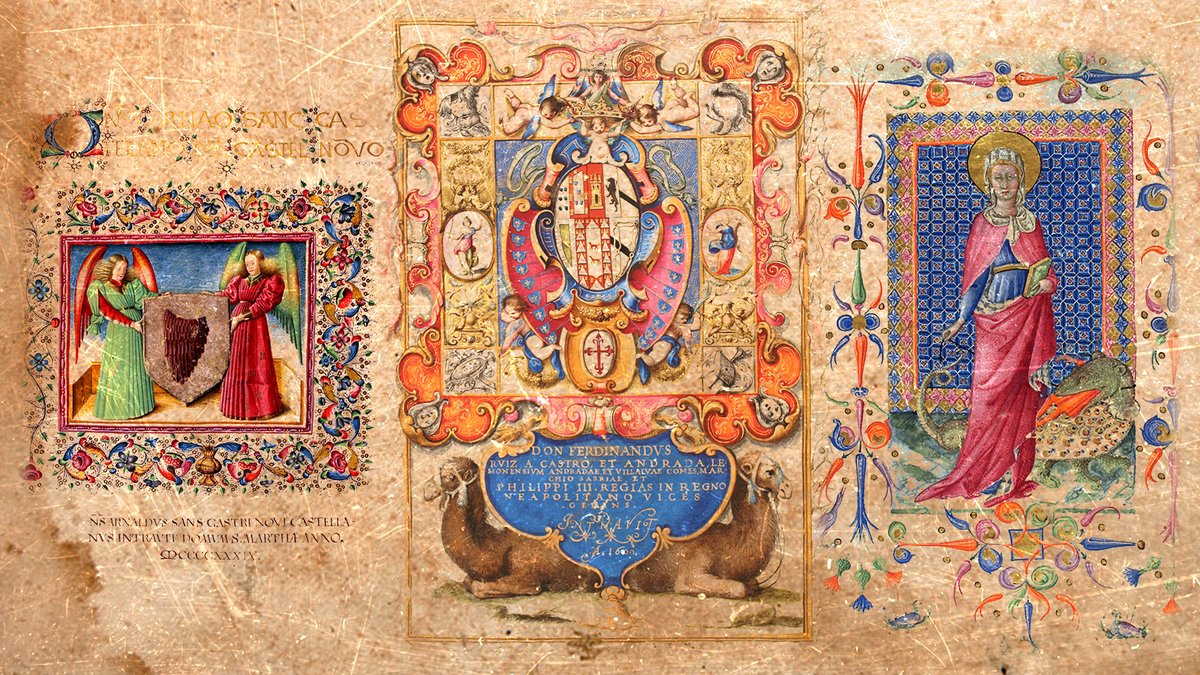 SANC CA S
CASTEL NOVO
NS ARNALDVS SANS CASTRI NOVI CASTELLA-
NVS INTRAVIT DOMVM S. MARTHÆ ANNO.
MCCCCXXXIX.
DON FERDINANDVS
RVIZ A CASTRO, ET ANDRADA, LE
MONENSIVM ANDRADAE ET VILALVAE COMES, MAR
CHIO SARRIAE, ET
PHILIPPI III. REGIAS IN REGNO
NEAPOLITANO VICES
GERENS.
INTRAVIT
A. 1600.